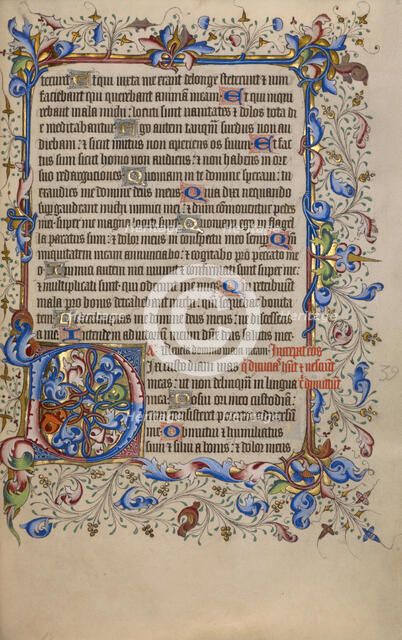 terunt Et qui iuxta me erant de longe steterunt & uim
faciebant qui querebant animam meam Et qui inqui
rebant mala michi: locuti sunt uanitates & dolos tota di
e meditabantur Ego autem tanquam surdus non au
diebam: & sicut mutus non aperiens os suum Et fac
tus sum sicut homo non audiens: & non habens in ore
suo redargutiones Quoniam in te domine speraui: tu
exaudies me domine deus meus Quia dixi nequando
supergaudeant michi inimici mei: & dum commouentur pedes
mei super me magna locuti sunt Quoniam ego in flagel
la paratus sum: & dolor meus in conspectu meo semper Qm
iniquitatem meam annunciabo: & cogitabo pro peccato me
o Inimici autem mei uiuunt & confirmati sunt super me:
& multiplicati sunt qui oderunt me Qui retribuunt
mala pro bonis detrahebant
tem Ne derelinquas me domine deus meus: ne discesseris
a me Intende in adiutorium meum domine deus salutis mee
In
& dimittet
micas: ut non delinquam in lingua
mea Posui ori meo custodiam:
cum consisteret peccator aduersum
me Obmutui & humiliatus
sum & silui a bonis: & dolor meus
39
Heritage